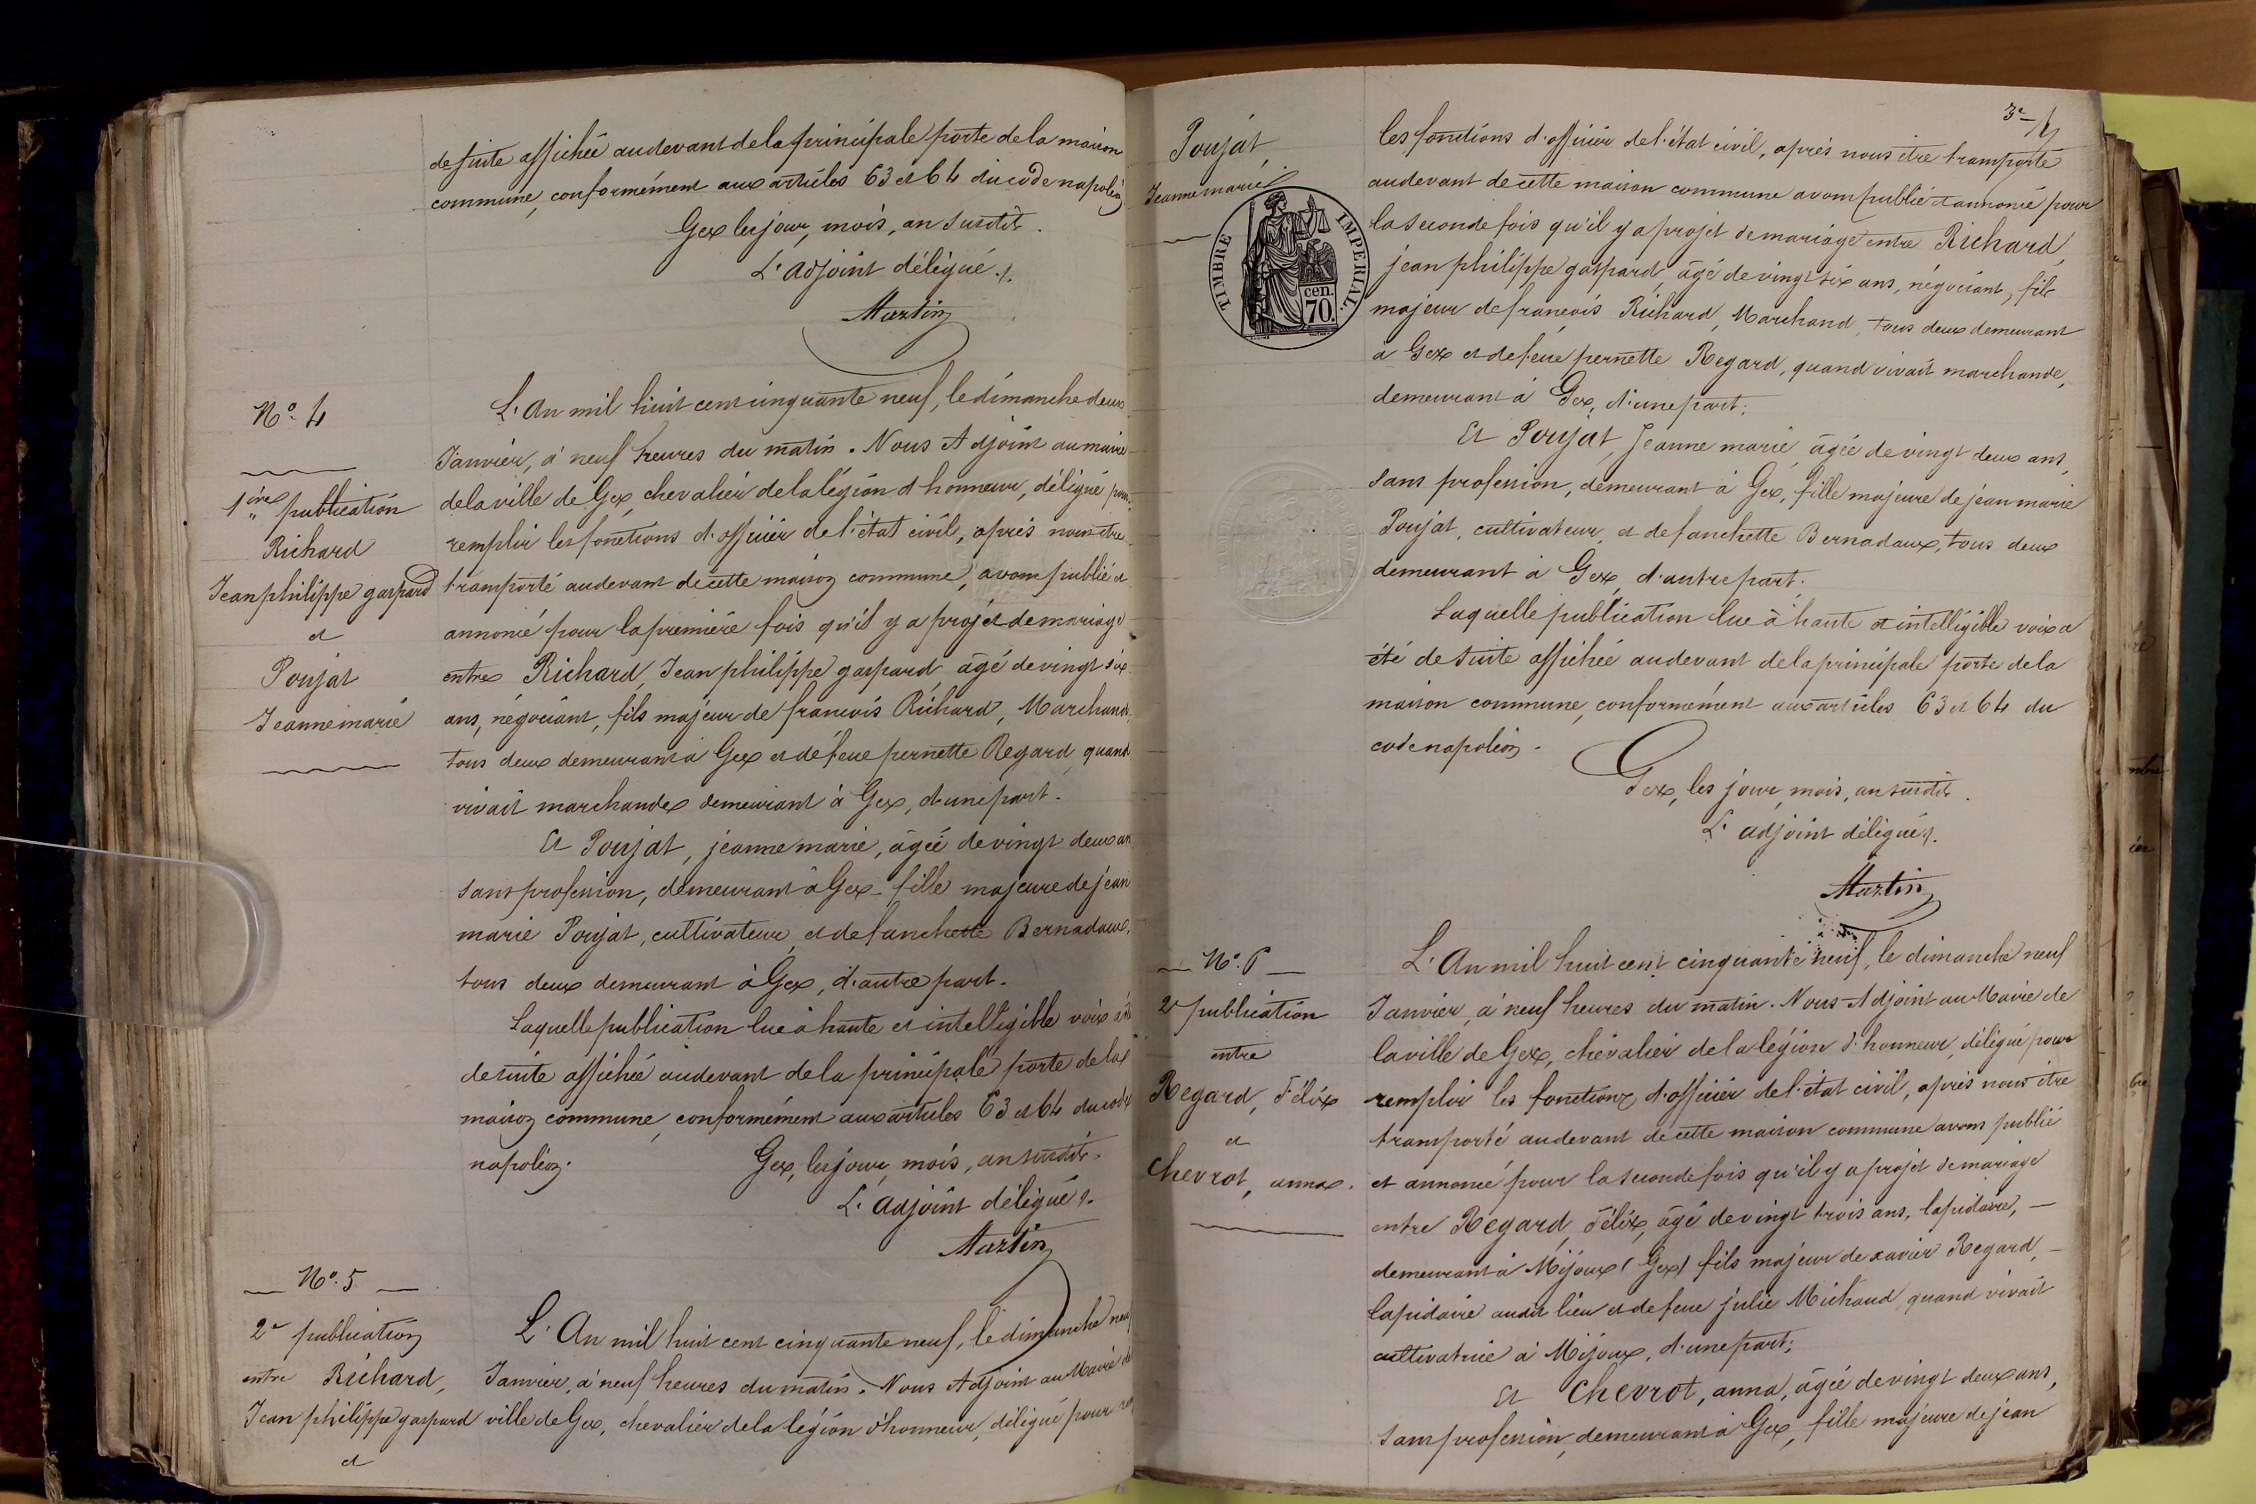 de suite affichée audevant de la principale porte de la maison
commune, conformément aux articles 63 et 64 du code napoléon
Gex les jour, mois, an susdits.
L'adjoint délégué.
Martin
N.o 4
1ère publication
Richard
Jean philippe gaspard
et
Poujat
Jeanne marie
L'An mil huit cent cinquante neuf, le dimanche deux
Janvier, à neuf heures du matin. Nous Adjoint au maire
de la ville de Gex, chevalier de la légion d'honneur, délégué pour
remplir les fonctions d'officier de l'état civil, après nous être
transporté audevant de cette maison commune, avons publié et
annoncé pour la première fois qu'il y a projet de mariage
entre Richard, Jean philippe gaspard, âgé de vingt six
ans, négociant, fils majeur de francois Richard, Marchand
tous deux demeurant à Gex et de feue pernette Regard, quand
vivait marchande demeurant à Gex, d'une part.
Et Poujat, jeanne marie, âgée de vingt deux ans
sans profession, demeurant à Gex fille majeure de jean
marie Poujat, cultivateur, et de fanchette Bernadaux,
tous deux demeurant à Gex, d'autre part.
Laquelle publication lue à haute et intelligible voix a été
de suite affichée audevant de la principale porte de la
maison commune, conformément aux articles 63 et 64 du code
napoléon. Gex, les jour, mois, an susdits.
L'adjoint délégué.
Martin
N.o 5
2e publication
entre Richard,
Jean philippe gaspard
et
L'An mil huit cent cinquante neuf, le dimanche neuf
Janvier, à neuf heures du matin. Nous Adjoint au Maire de
ville de Gex, chevalier de la légion d'honneur, délégué pour
Poujat
Jeanne marie
TIMBRE IMPERIAL
cen.
70.
3e
les fonctions d'officier de l'état civil, après nous être transporté
audevant de cette maison commune avons publié et annoncé pour
la seconde fois qu'il y a projet de mariage entre Richard,
jean philippe gaspard, âgé de vingt six ans, négociant, fils
majeur de francois Richard, Marchand, tous deux demeurant
à Gex et de feue pernette Regard, quand vivait marchande,
demeurant à Gex, d'une part;
Et Poujat, Jeanne marie, âgée de vingt deux ans,
sans profession, demeurant à Gex, fille majeure de jean marie
Poujat, cultivateur, et de fanchette Bernadaux, tous deux
demeurant à Gex, d'autre part.
Laquelle publication lue à haute et intelligible voix a
été de suite affichée audevant de la principale porte de la
maison commune, conformément aux articles 63 et 64 du
code napoléon.
Gex, les jour, mois, an susdits.
L'adjoint délégué.
Martin
N.o 6
2e publication
entre
Regard, Félix
et
Chevrot, anna.
L'An mil huit cent cinquante neuf, le dimanche neuf
Janvier, à neuf heures du matin. Nous Adjoint au Maire de
la ville de Gex, chevalier de la légion d'honneur, délégué pour
remplir les fonctions d'officier de l'état civil, après nous être
transporté audevant de cette maison commune avons publié
et annoncé pour la seconde fois qu'il y a projet de mariage
entre Regard, Félix, âgé de vingt trois ans, lapidaire,
demeurant à Mijoux (Gex) fils majeur de xavier Regard,
lapidaire audit lieu et de feue julie Michaud quand vivait
cultivatrice à Mijoux, d'une part;
Et Chevrot, anna, âgée de vingt deux ans,
sans profession, demeurant à Gex, fille majeure de jean